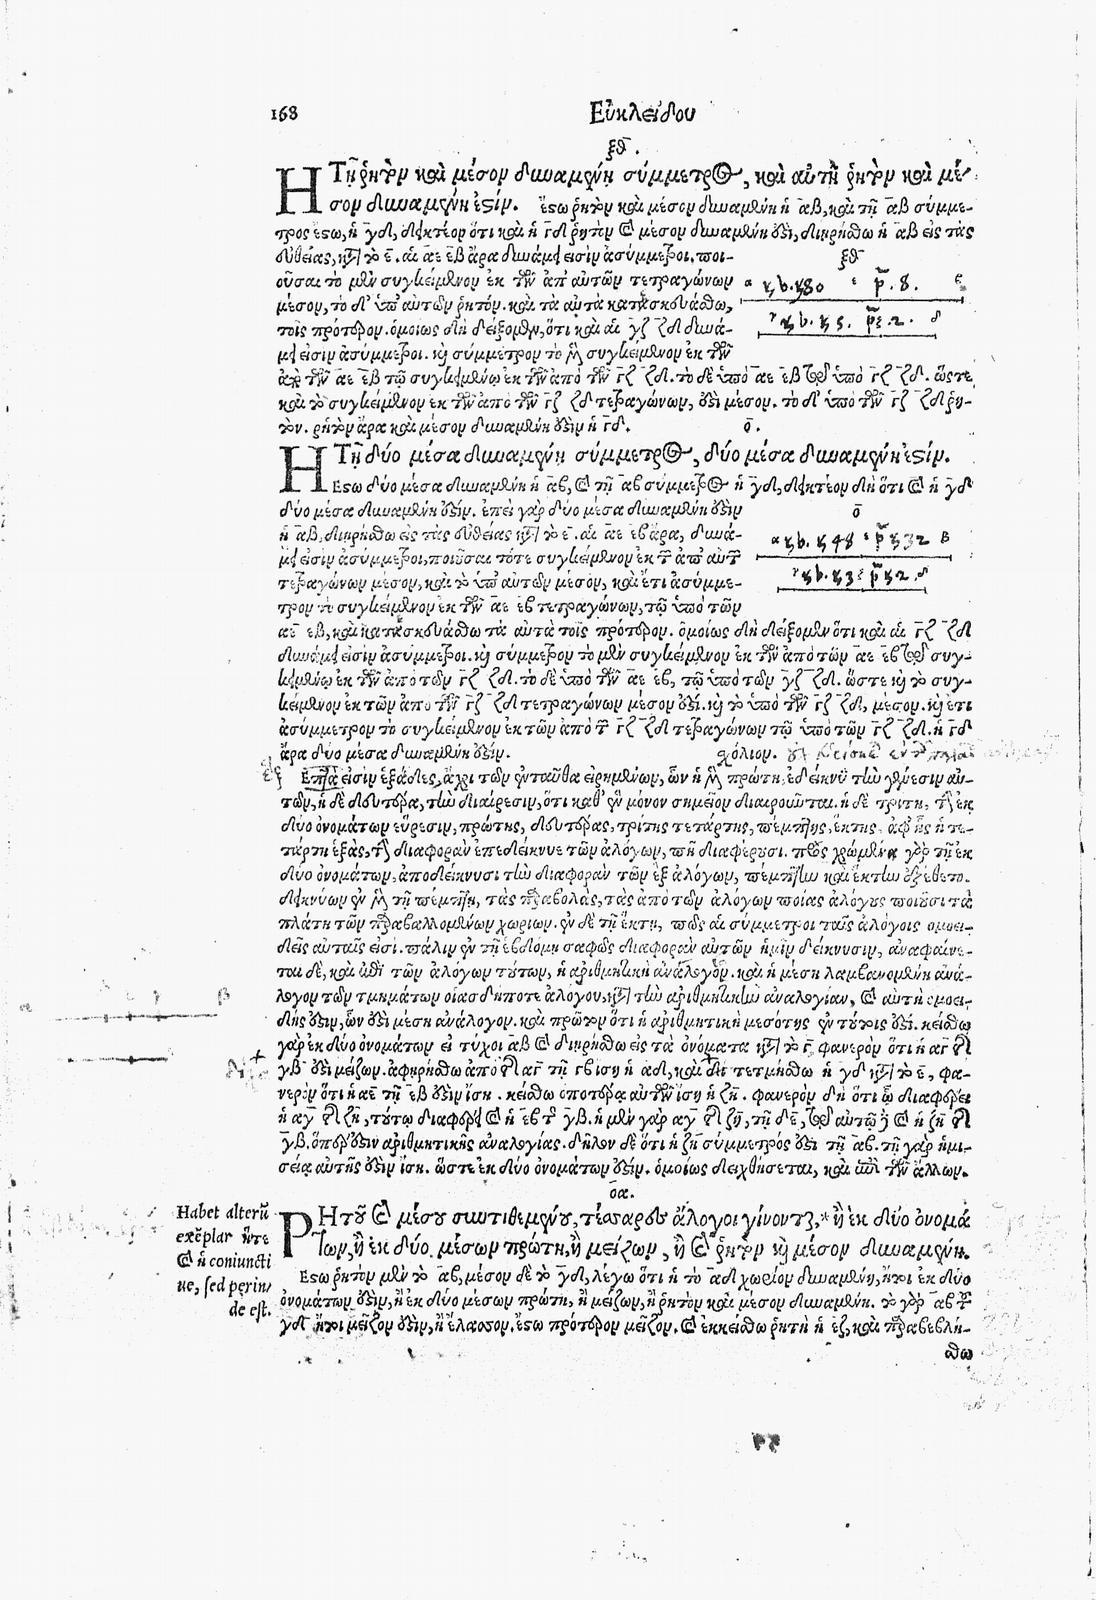 168
Εὐκλείδου
ξθ.
Η Τῇ ῥητὸν καὶ μέσον δυναμένῃ σύμμετρος, καὶ αὐτὴ ῥητὸν καὶ μέ-
σον δυναμένη ἐστίν. ἔστω ῥητὸν καὶ μέσον δυναμένη ἡ αβ, καὶ τῇ αβ σύμμε-
τρος ἔστω, ἡ γδ, δεικτέον ὅτι καὶ ἡ γδ ῥητὸν καὶ μέσον δυναμένη ἐστὶ, διῃρήσθω ἡ αβ εἰς τὰς
εὐθείας, κατὰ τὸ ε. αἱ αε εβ ἄρα δυνάμει εἰσὶν ἀσύμμετροι. ποι-
οῦσαι τὸ μὲν συγκείμενον ἐκ τῶν ἀπ' αὐτῶν τετραγώνων
μέσον, τὸ δ' ὑπ' αὐτῶν ῥητόν. καὶ τὰ αὐτὰ κατεσκευάσθω,
τοῖς πρότερον. ὁμοίως δὴ δείξομεν, ὅτι καὶ αἱ γζ ζδ δυνά-
μει εἰσὶν ἀσύμμετροι. καὶ σύμμετρον τὸ μὲν συγκείμενον ἐκ τῶν
ἀπὸ τῶν αε εβ τῷ συγκειμένῳ ἐκ τῶν ἀπὸ τῶν γζ ζδ. τὸ δὲ ὑπὸ αε εβ τῷ ὑπὸ γζ ζδ. ὥστε
καὶ τὸ συγκείμενον ἐκ τῶν ἀπὸ τῶν γζ ζδ τετραγώνων, ἐστὶ μέσον. τὸ δ' ὑπὸ τῶν γζ ζδ ῥη-
τόν. ῥητὸν ἄρα καὶ μέσον δυναμένη ἐστὶν ἡ γδ.
ο.
Η Τῇ δύο μέσα δυναμένῃ σύμμετρος, δύο μέσα δυναμένη ἐστίν.
Ἔστω δύο μέσα δυναμένη ἡ αβ, καὶ τῇ αβ σύμμετρος ἡ γδ, δεικτέον δὴ ὅτι καὶ ἡ γδ
δύο μέσα δυναμένη ἐστίν. ἐπεὶ γὰρ δύο μέσα δυναμένη ἐστὶν
ἡ αβ, διῃρήσθω εἰς τὰς εὐθείας κατὰ τὸ ε. αἱ αε εβ ἄρα, δυνά-
μει εἰσὶν ἀσύμμετροι, ποιοῦσαι τότε συγκείμενον ἐκ τῶν ἀπ' αὐτῶν
τετραγώνων μέσον, καὶ τὸ ὑπ' αὐτῶν μέσον, καὶ ἔτι ἀσύμμε-
τρον τὸ συγκείμενον ἐκ τῶν αε εβ τετραγώνων, τῷ ὑπὸ τῶν
αε εβ, καὶ κατεσκευάσθω τὰ αὐτὰ τοῖς πρότερον. ὁμοίως δὴ δείξομεν ὅτι καὶ αἱ γζ ζδ
δυνάμει εἰσὶν ἀσύμμετροι. καὶ σύμμετρον τὸ μὲν συγκείμενον ἐκ τῶν ἀπὸ τῶν αε εβ τῷ συγ-
κειμένῳ ἐκ τῶν ἀπὸ τῶν γζ ζδ. τὸ δὲ ὑπὸ τῶν αε εβ, τῷ ὑπὸ τῶν γζ ζδ. ὥστε καὶ τὸ συγ-
κείμενον ἐκ τῶν ἀπὸ τῶν γζ ζδ τετραγώνων μέσον ἐστί. καὶ τὸ ὑπὸ τῶν γζ ζδ, μέσον. καὶ ἔτι
ἀσύμμετρον τὸ συγκείμενον ἐκ τῶν ἀπὸ τῶν γζ ζδ τετραγώνων τῷ ὑπὸ τῶν γζ ζδ. ἡ γδ
ἄρα δύο μέσα δυναμένη ἐστίν.
σχόλιον.
εἰσιν ἑξάδες, ἄχρι τῶν ἐνταῦθα εἰρημένων, ὧν ἡ μὲν πρώτη, ἐδείκνυ τὴν γένεσιν αὐ-
τῶν, ἡ δὲ δευτέρα, τὴν διαίρεσιν, ὅτι καθ' ἓν μόνον σημεῖον διαιροῦνται. ἡ δὲ τρίτη, τὴν ἐκ
δύο ὀνομάτων εὕρεσιν, πρώτης, δευτέρας, τρίτης τετάρτης, πέμπτης, ἕκτης. ἀφ' ἧς ἡ τε-
τάρτη ἑξὰς, τὴν διαφορὰν ἐπεδείκνυε τῶν ἀλόγων, πῇ διαφέρουσι. προσχρώμενος γὰρ τῇ ἐκ
δύο ὀνομάτων, ἀποδείκνυσι τὴν διαφορὰν τῶν ἓξ ἀλόγων, πέμπτην καὶ ἕκτην ἐξέθετο.
δεικνύων ἐν μὲν τῇ πέμπτῃ, τὰς παραβολὰς, τὰς ἀπὸ τῶν ἀλόγων ποίας ἀλόγους ποιοῦσι τὰ
πλάτη τῶν παραβαλλομένων χωρίων. ἐν δὲ τῇ ἕκτῃ, πῶς αἱ σύμμετροι ταῖς ἀλόγοις ὁμοει-
δεῖς αὐταῖς εἰσι. πάλιν ἐν τῇ ἑβδόμῃ σαφῶς διαφορὰν αὐτῶν ἡμῖν δείκνυσιν, ἀναφαίνε-
ται δὲ, καὶ ἐπὶ τῶν ἀλόγων τούτων, ἡ ἀριθμητικὴ ἀνάλογον. καὶ ἡ μέση λαμβανομένη ἀνά-
λογον τῶν τμημάτων οἱασδήποτε ἀλόγου, κατὰ τὴν ἀριθμητικὴν ἀναλογίαν, καὶ αὐτὴ ὁμοει-
δής ἐστιν, ὧν ἐστὶ μέση ἀνάλογον. καὶ πρῶτον ὅτι ἡ ἀριθμητικὴ μεσότης ἐν τούτοις ἐστί. κείσθω
γὰρ ἐκ δύο ὀνομάτων εἰ τύχοι αβ καὶ διῃρήσθω εἰς τὰ ὀνόματα κατὰ τὸ γ. φανερὸν ὅτι ἡ αγ τῆς
γβ ἐστὶ μείζων. ἀφῃρήσθω ἀπὸ τῆς αγ τῇ γβ ἴση ἡ αδ, καὶ τετμήσθω ἡ γδ κατὰ τὸ ε, φα-
νερὸν ὅτι ἡ αε τῇ εβ ἐστὶν ἴση. κείσθω ὁποτέρᾳ αὐτῶν ἴση ἡ ζη. φανερὸν δὴ ὅτι ᾧ διαφέρει
ἡ αγ τῆς ζη, τούτῳ διαφέρει καὶ ἡ εβ τῆς γβ. ἡ μὲν γὰρ αγ τῆς ζη, τῇ δε, τῷ αὐτῷ δὲ καὶ ἡ ζη τῆς
γβ, ὅπερ ἐστὶν ἀριθμητικῆς ἀναλογίας. δῆλον δὲ ὅτι ἡ ζη σύμμετρός ἐστι τῇ αβ. τῇ γὰρ ἡμι-
σείᾳ αὐτῆς ἐστὶν ἴση. ὥστε ἐκ δύο ὀνομάτων ἐστίν. ὁμοίως δειχθήσεται, καὶ ἐπὶ τῶν ἄλλων.
οα.
Ρ Ητοῦ καὶ μέσου συντιθεμένου, τέσσαρες ἄλογοι γίνονται, * ἢ ἐκ δύο ὀνομά
των, ἢ ἐκ δύο μέσων πρώτη, ἢ μείζων, ἢ καὶ ῥητὸν καὶ μέσον δυναμένη.
Ἔστω ῥητὸν μὲν τὸ αβ, μέσον δὲ τὸ γδ, λέγω ὅτι ἡ τὸ αδ χωρίον δυναμένη, ἤτοι ἐκ δύο
ὀνομάτων ἐστὶν, ἢ ἐκ δύο μέσων πρώτη, ἢ μείζων, ἢ ῥητὸν καὶ μέσον δυναμένη. τὸ γὰρ αβ τοῦ
γδ ἤτοι μεῖζον ἐστὶν, ἢ ἔλασσον. ἔστω πρότερον μεῖζον. καὶ ἐκκείσθω ῥητὴ ἡ εζ, καὶ παραβεβλή-
σθω
Habet alterũ
exẽplar ἤτε
καὶ ἡ coniuncti
ue, sed perin
de est.